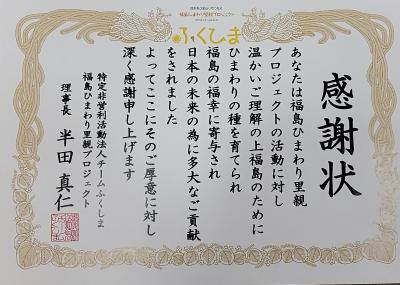 福島ひまわり里親プロジェクト
ふくしま
感謝状
あなたは福島ひまわり里親
プロジェクトの活動に対し
温かいご理解の上福島のために
ひまわりの種を育てられ
福島の福幸に寄与され
日本の未来の為に多大なご貢献
をされました
よってここにそのご厚意に対し
深く感謝申し上げます
特定非営利活動法人チームふくしま
福島ひまわり里親プロジェクト
理事長 半田真仁